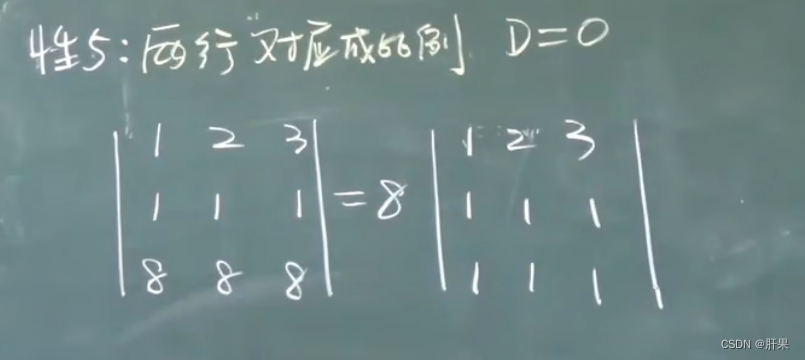 性5:两行对应成比例 D=0
| 1 2 3 | | 1 2 3 |
| 1 1 1 | = 8 | 1 1 1 |
| 8 8 8 | | 1 1 1 |
CSDN @肝果